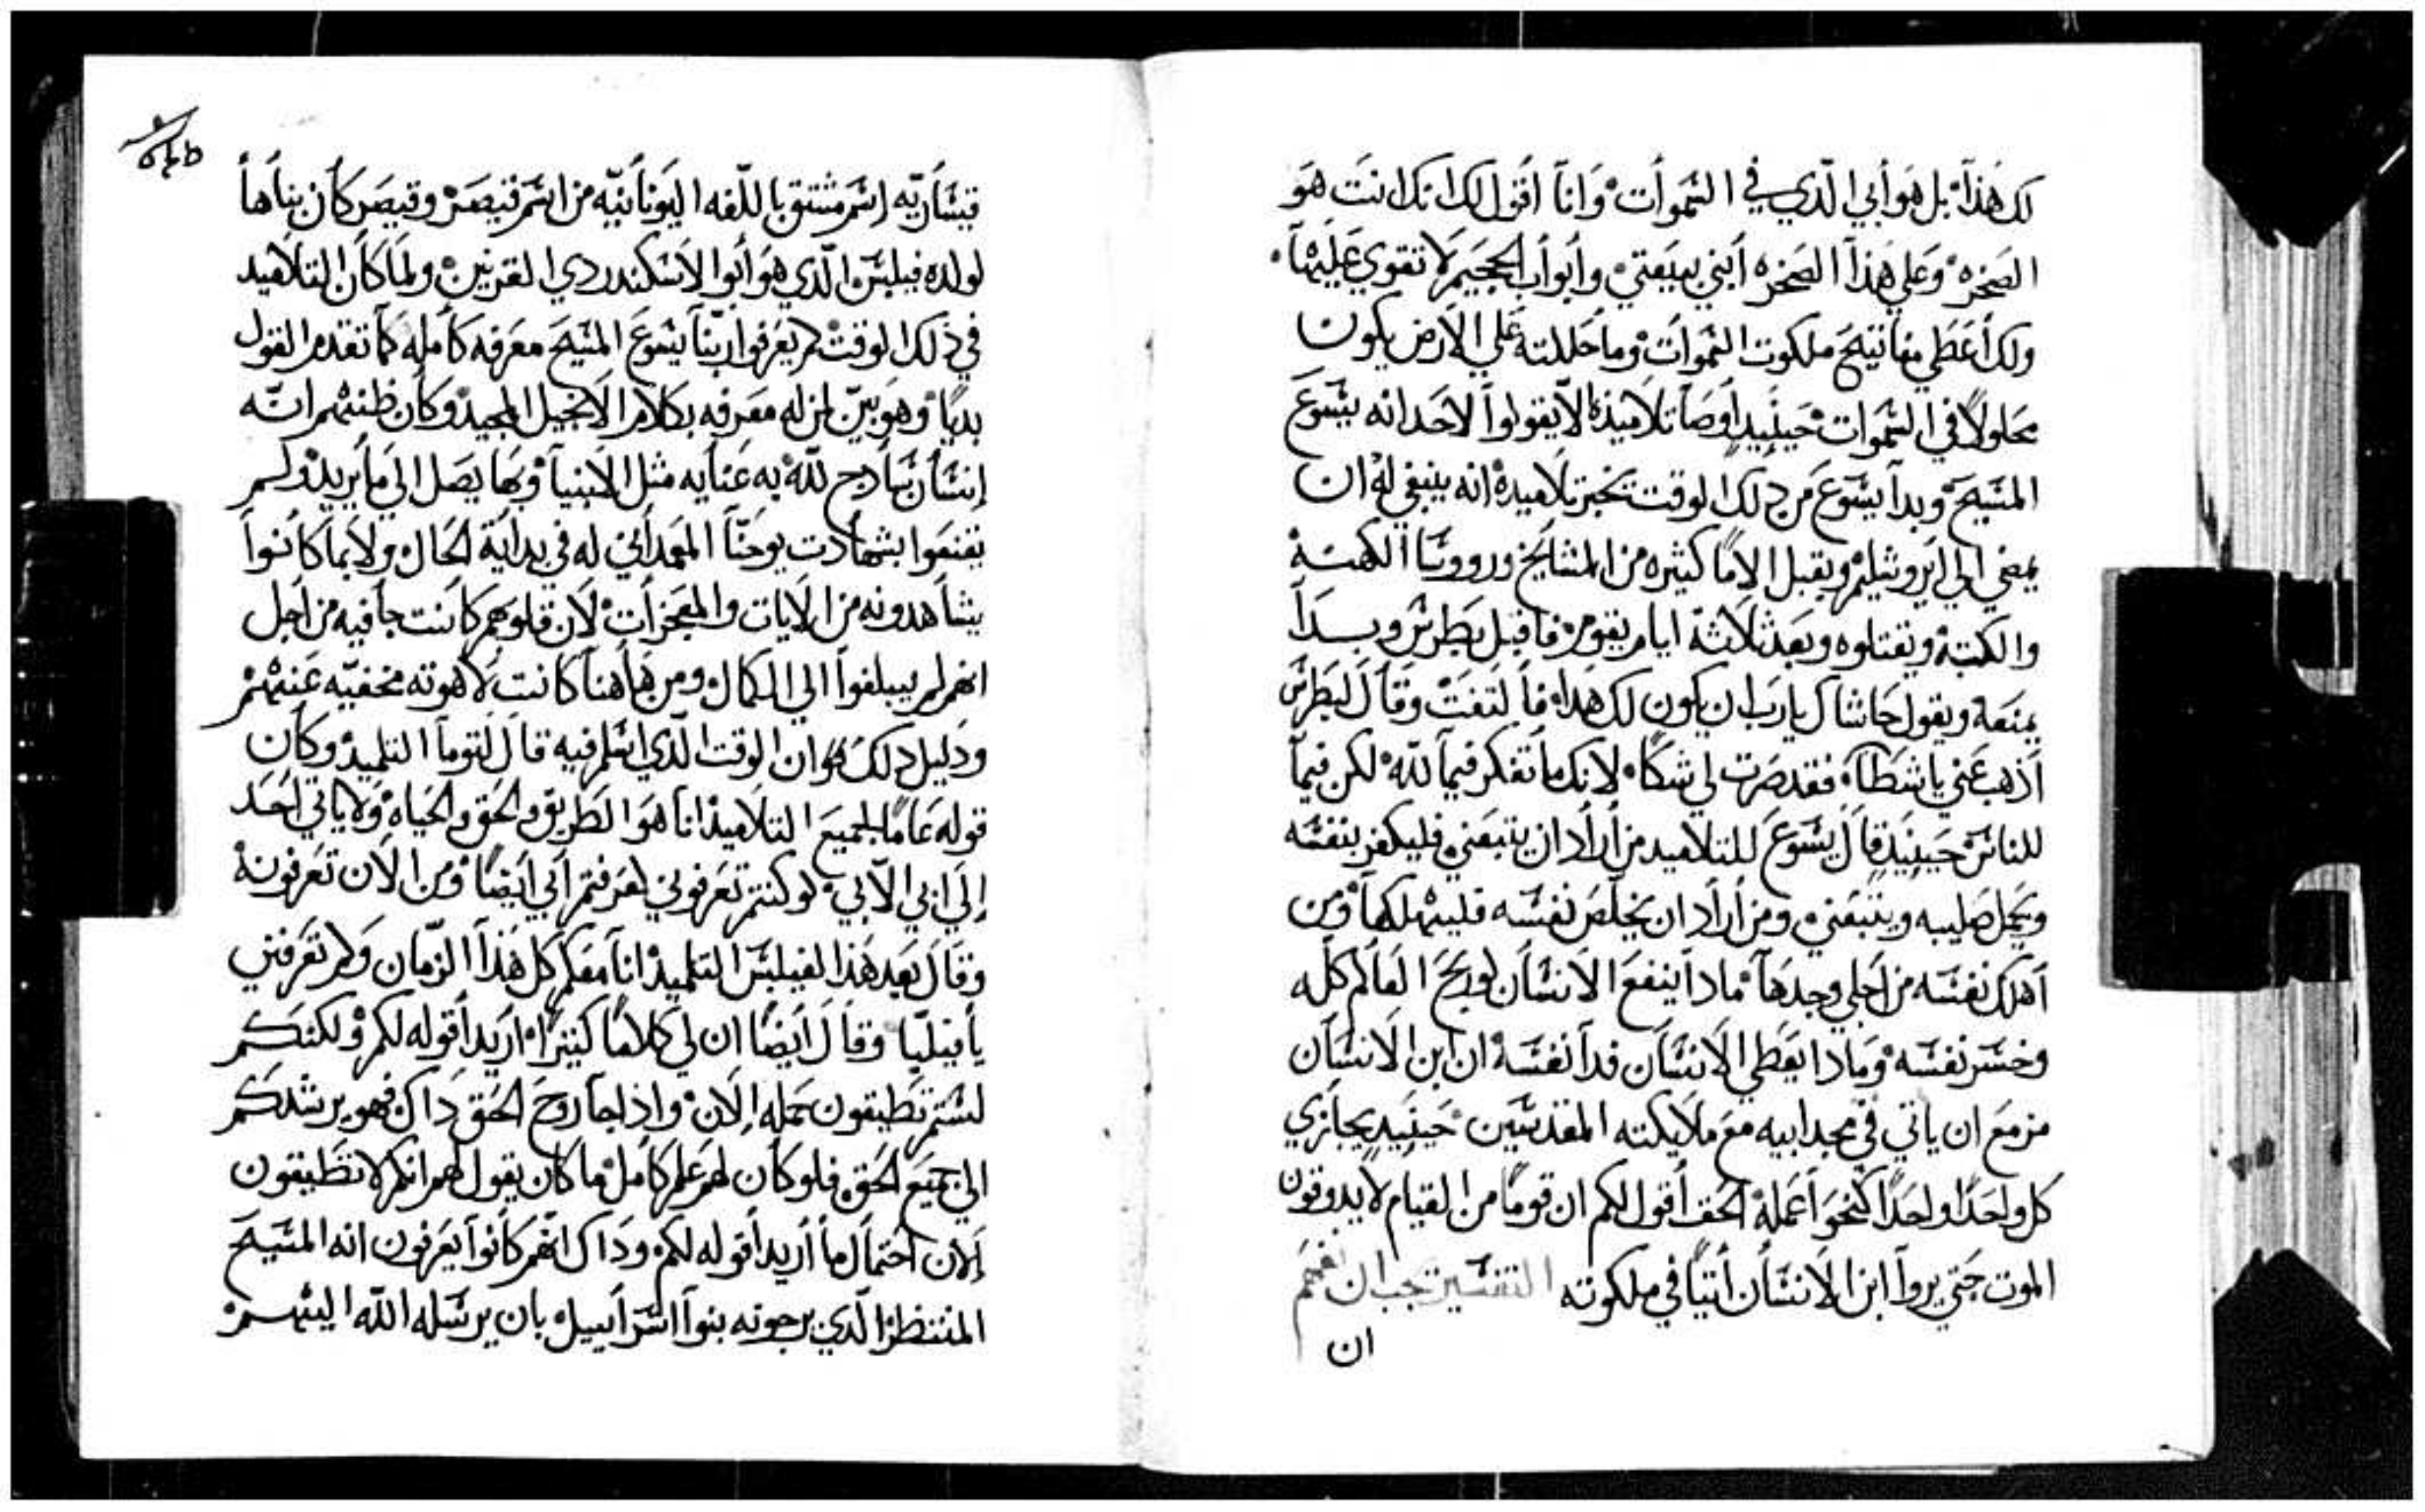 لك هذا بل هو أبي الّدي في السموات وانا اقول لك انك انت هو
الصخره وعلي هذا الصخره أبني بيعتي وأبواب الجحيم لا تقوي عليها
ولك أعطي مفاتيح ملكوت السموات وما حللته علي الارض يكون
محلولاً في السموات حينيد أوصا تلاميذه ألا يقولوا لاحد انه يسوع
المسيح وبدا يسوع من دلك الوقت يخبر تلاميده انه ينبغي له ان
يمضي الي ايروشليم ويقبل الاماً كثيره من المشايخ وروسا الكهنة
والكتبة ويقتلوه وبعد ثلاثة ايام يقوم فاقبل بطرس وبدا
يمنعه ويقول حاشاك يارب ان يكون لك هدا فالتفت وقال لبطرس
اذهب عني يا شطان فقد صرت لي شكا لانك ما تفكر فيما لله لكن فيما
للناس حينيد قال يسوع للتلاميد من أراد ان يتبعني فليكفر بنفسه
ويحمل صليبه ويتبعني ومن أراد ان يخلص نفسه فليهلكها ومن
أهلك نفسه من اجلي وجدها مادا ينفع الانسان لو ربح العالم كله
وخسر نفسه ومادا يعطي الانسان فدا نفسه ان ابن الانسان
مزمع ان ياتي في مجد ابيه مع ملايكته المقدسين حينيد يجازي
كل واحدًا واحدًا كنحو أعمله الحق أقول لكم ان قومًا من القيام لا يدوقون
الموت حتي يروا ابن الانسان أتيًا في ملكوته التفسير يجب ان نفهم
ان
قيسارية اسم مشتق باللغه اليونانيّه من اسم قيصر وقيصر كان بناها
لولده فيلبس الّدي هو أبوا الاسكندر دي القرنين ولما كان التلاميد
في ذلك الوقت لم يعرفوا ربنا يسوع المسيح معرفه كامله كما تقدم القول
بديًا وهو بيّن لمن له معرفه بكلام الانجيل المجيد وكان ظنهم انّه
إنسان سادج لله به عنايه مثل الانبيا وبها يصل الي ما يريد ولم
يقنعوا بشهادت يوحنّا المعمداني له في بداية الحال ولا بما كانوا
يشاهدونه من الايات والمعجزات لان قلوبهم كانت جافيه من أجل
انهم لم يبلغوا الي الكمال ومن هاهنا كانت لاهوته مخفيّه عنهم
ودليل دلك هو ان الوقت الّدي اسلم فيه قال لتوما التلميد وكان
قوله عامًا لجميع التلاميد انا هو الطريق والحق والحياه ولا ياتي احد
إلي ابي الآ بي لو كنتم تعرفوني لعرفتم أبي أيضًا ومن الان تعرفونه
وقال بعد هذا لفيلبس التلميد انا معكم كل هذا الزمان ولم تعرفني
يا فيلبّا وقال أيضًا ان لي كلامًا كثيرًا اريد أقوله لكم ولكنكم
لستم تطيقون حمله الان واذا جا روح الحق داك فهو يرشدكم
الي جميع الحق فلو كان لهم علم كامل ما كان يقول لهم انكم لا تطيقون
الان احتمال ما أريد أقوله لكم وداك انهم كانوا يعرفون انه المسيح
المنتظر الّدي يرجونه بنوا اسراييل بان يرسله الله اليهم